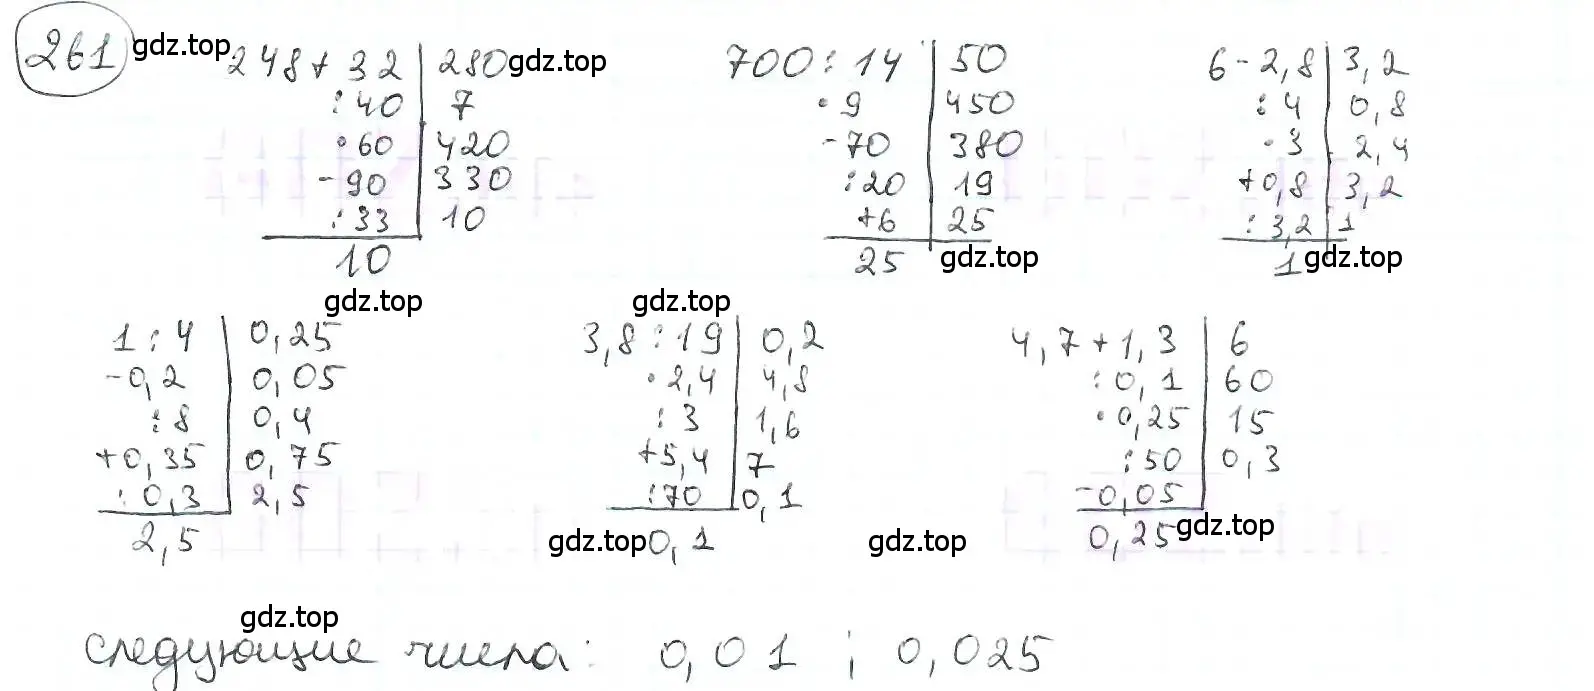 261 gdz.top
248+32 | 280 gdz.top
:40 | 7
·60 | 420
-90 | 330
:33 | 10
10
gdz.top
700:14 | 50
·9 | 450
-70 | 380
:20 | 19
+6 | 25
25 gdz.top
gdz.top
6-2,8 | 3,2
:4 | 0,8
·3 | 2,4
+0,8 | 3,2
:3,2 | 1
1 gdz.top
1:4 | 0,25
-0,2 | 0,05
:8 | 0,4
+0,35 | 0,75
:0,3 | 2,5
2,5
3,8:19 | 0,2
·2,4 | 4,8
:3 | 1,6
+5,4 | 7
:70 | 0,1
gdz.top 0,1
gdz.top
4,7+1,3 | 6
:0,1 | 60
·0,25 | 15
:50 | 0,3
-0,05
0,25 gdz.top
gdz.top
следующие числа: 0,01 ; 0,025